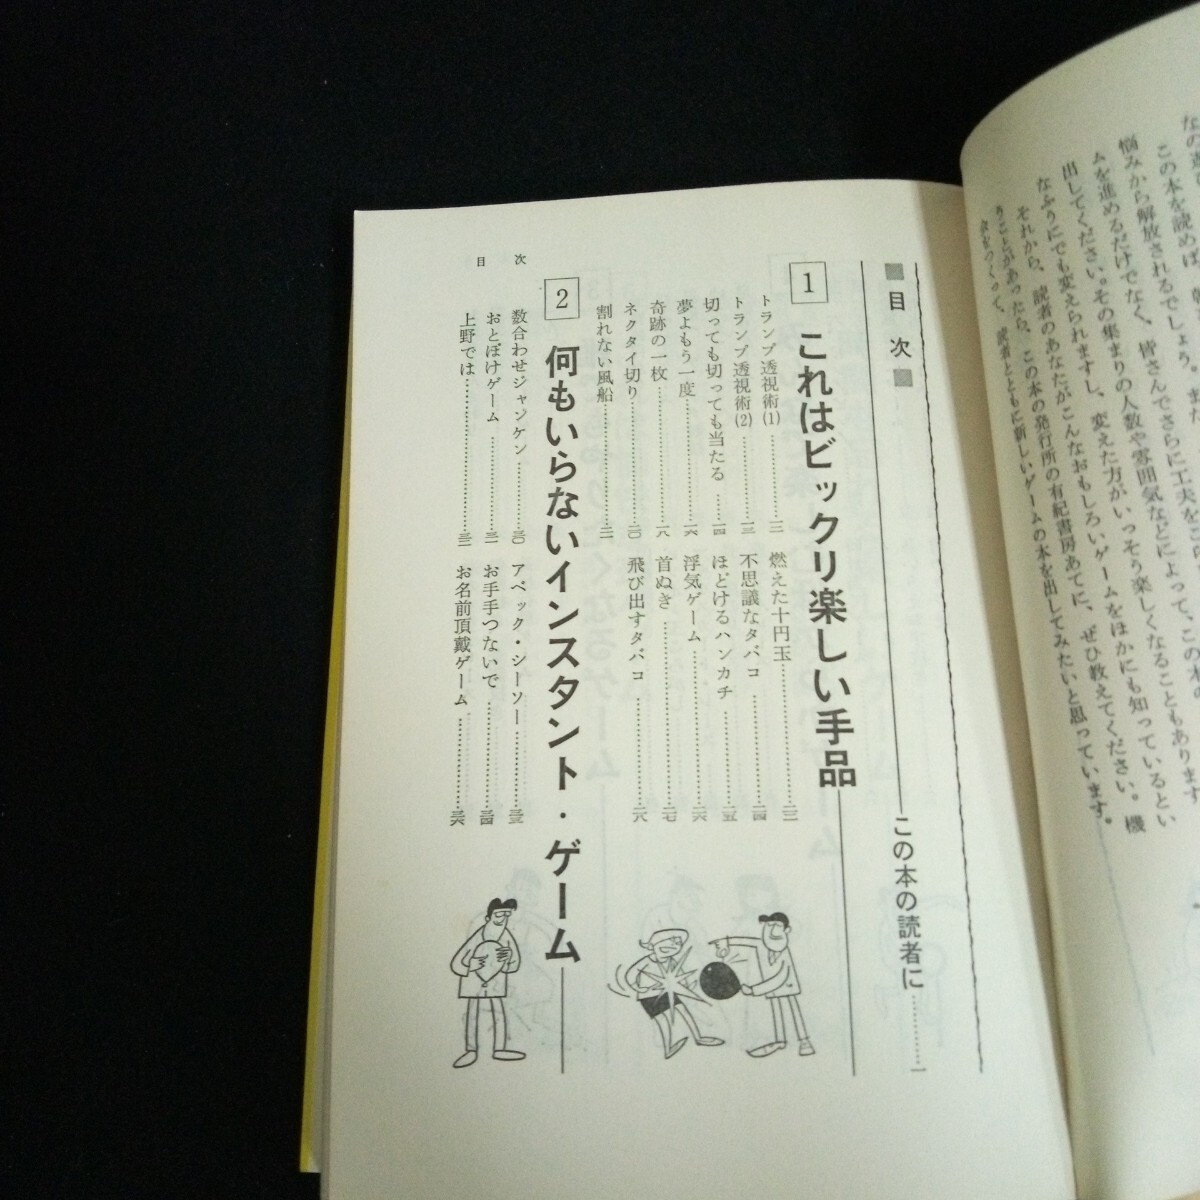 な
この本を読めば、
悩みから解放されるでしょう。また
ムを進めるだけでなく、皆さんでさらに工夫を
出してください。その集まりの人数や雰囲気などによって、この本の
なふうにでも変えられますし、変えた方がいっそう楽しくなることもあります
それから、読者のあなたがこんなおもしろいゲームをほかにも知っているとい
うことがあったら、この本の発行所の有紀書房あてに、ぜひ教えてください。機
会をつくって、読者とともに新しいゲームの本を出してみたいと思っています。
■目次■
この本の読者に…………一
1 これはビックリ楽しい手品
トランプ透視術(1)…………一二
トランプ透視術(2)…………一三
切っても切っても当たる……一四
夢よもう一度…………一六
奇跡の一枚…………一八
ネクタイ切り…………二〇
割れない風船…………二一
燃えた十円玉…………二三
不思議なタバコ…………二四
ほどけるハンカチ…………二五
浮気ゲーム…………二六
首ぬき…………二七
飛び出すタバコ…………二八
2 何もいらないインスタント・ゲーム
数合わせジャンケン…………三〇
おとぼけゲーム…………三一
上野では…………三二
アベック・シーソー…………三三
お手手つないで…………三四
お名前頂戴ゲーム…………三六
目次